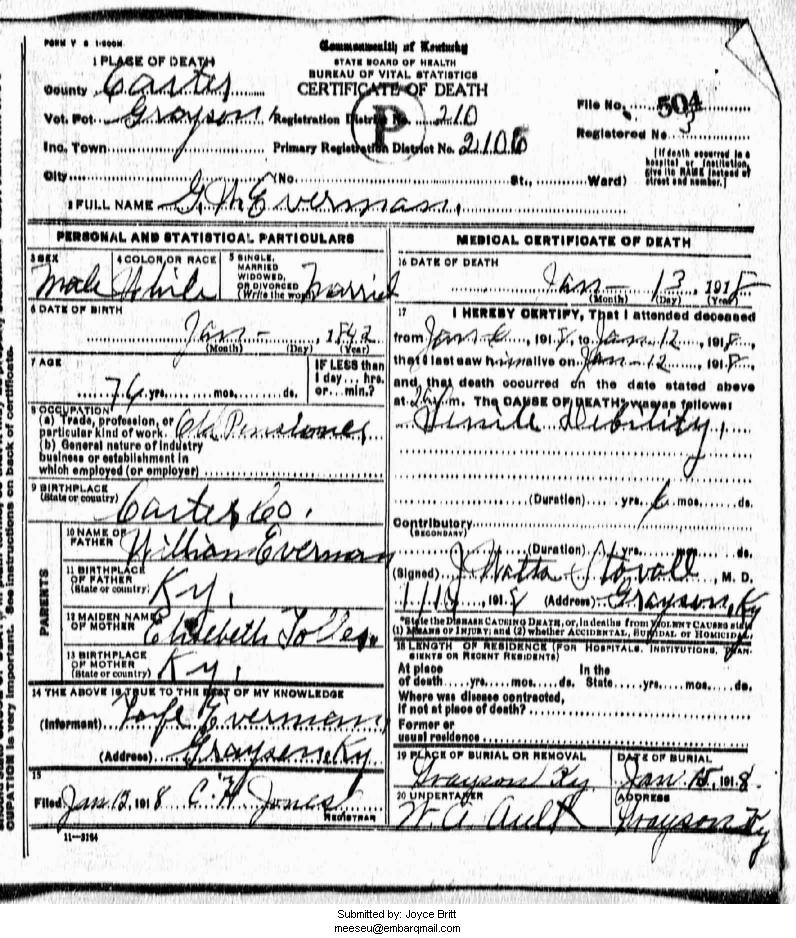 FORM V S 1-500M
Commonwealth of Kentucky
STATE BOARD OF HEALTH
BUREAU OF VITAL STATISTICS
CERTIFICATE OF DEATH
1 PLACE OF DEATH
County Carter
Vot. Pct. Grayson Registration District No. 210
File No. 504
Inc. Town Primary Registration District No. 2106
Registered No. 3
City (No. St., Ward)
[If death occurred in a hospital or institution, give its NAME instead of street and number.]
2 FULL NAME G. W Everman.
PERSONAL AND STATISTICAL PARTICULARS
3 SEX
Male
4 COLOR OR RACE
White
5 SINGLE, MARRIED WIDOWED, OR DIVORCED (Write the word)
Married
6 DATE OF BIRTH
Jan - , 1842
(Month) (Day) (Year)
7 AGE
76 yrs. mos. ds.
IF LESS than 1 day... hrs. or... min.?
8 OCCUPATION
(a) Trade, profession, or
particular kind of work. Old Pensioner
(b) General nature of industry
business or establishment in
which employed (or employer)
9 BIRTHPLACE
(State or country)
Carter Co.
PARENTS
10 NAME OF FATHER
William Everman
11 BIRTHPLACE OF FATHER
(State or country)
Ky.
12 MAIDEN NAME OF MOTHER
Elisebeth
13 BIRTHPLACE OF MOTHER
(State or country)
Ky.
14 THE ABOVE IS TRUE TO THE BEST OF MY KNOWLEDGE
(Informant) Everman
(Address) Grayson, Ky
15
Filed Jan 12, 1918 C. H Jones
REGISTRAR
11-3184
MEDICAL CERTIFICATE OF DEATH
16 DATE OF DEATH
Jan - 13, 1918
(Month) (Day) (Year)
17 I HEREBY CERTIFY, That I attended deceased
from Jan 6, 1918, to Jan 12, 1918,
that I last saw him alive on Jan - 12, 1918,
and that death occurred on the date stated above
at m. The CAUSE OF DEATH* was as follows:
Senile Debility,
(Duration) yrs. 6 mos. ds.
Contributory
(SECONDARY)
(Duration) yrs. mos. ds.
(Signed) J Watts Stovall, M. D.
, 1918 (Address) Grayson, Ky
*State the DISEASE CAUSING DEATH, or, in deaths from VIOLENT CAUSES state
(1) MEANS OF INJURY; and (2) whether ACCIDENTAL, SUICIDAL OR HOMICIDAL.
18 LENGTH OF RESIDENCE (FOR HOSPITALS, INSTITUTIONS, TRANSIENTS OR RECENT RESIDENTS)
At place of death yrs. mos. ds. In the State yrs. mos. ds.
Where was disease contracted,
if not at place of death?
Former or
usual residence
19 PLACE OF BURIAL OR REMOVAL
Grayson Ky
DATE OF BURIAL
Jan 15, 1918
20 UNDERTAKER
W. A. Ault
ADDRESS
Grayson Ky
CUPATION is very important. See instructions on back of certificate.
P
Submitted by: Joyce Britt
meeseu@embarqmail.com